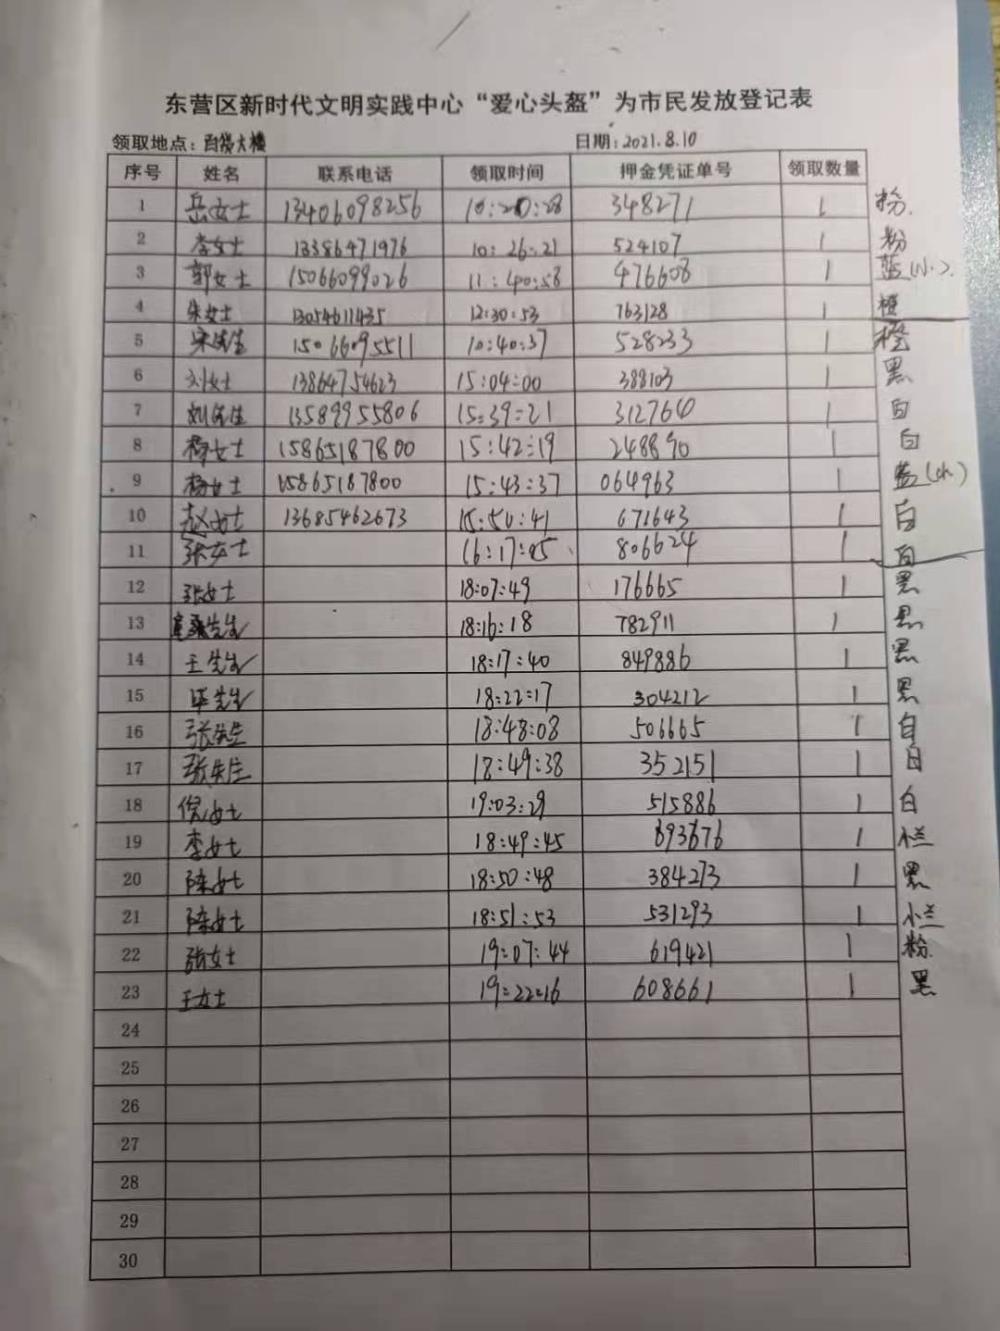 东营区新时代文明实践中心“爱心头盔”为市民发放登记表
领取地点：百货大楼 日期：2021.8.10
序号 姓名 联系电话 领取时间 押金凭证单号 领取数量
1 岳女士 13406098256 10:20:28 348271 1 粉.
2 李女士 13386471976 10:26:21 524107 1 粉
3 郭女士 15066099026 11:40:58 476608 1 蓝(小).
4 朱女士 13054611435 12:30:53 763128 1 橙
5 宋先生 15066095511 10:40:37 528233 1 橙
6 刘女士 13864754623 15:04:00 388103 1 黑
7 刘先生 13589955806 15:39:21 312760 1 白
8 杨女士 15865187800 15:42:19 248890 1 白
9 杨女士 15865187800 15:43:37 064963 1 蓝
10 赵女士 13685462673 15:50:41 671643 1 白
11 张女士 16:17:05 806624 1 白
12 张女士 18:07:49 176665 1 黑
13 先生 18:16:18 782911 1 黑
14 王先生 18:17:40 849886 1 黑
15 毕先生 18:22:17 304212 1 黑
16 张先生 18:48:08 506665 1 白
17 张先生 18:49:38 352151 1 白
18 倪女士 19:03:29 515886 1 白
19 李女士 18:49:45 693676 1 小兰
20 陈女士 18:50:48 384273 1 黑
21 陈女士 18:51:53 531293 1 小兰
22 张女士 19:07:44 619421 1 粉
23 王女士 19:22:16 608661 1 黑
24
25
26
27
28
29
30